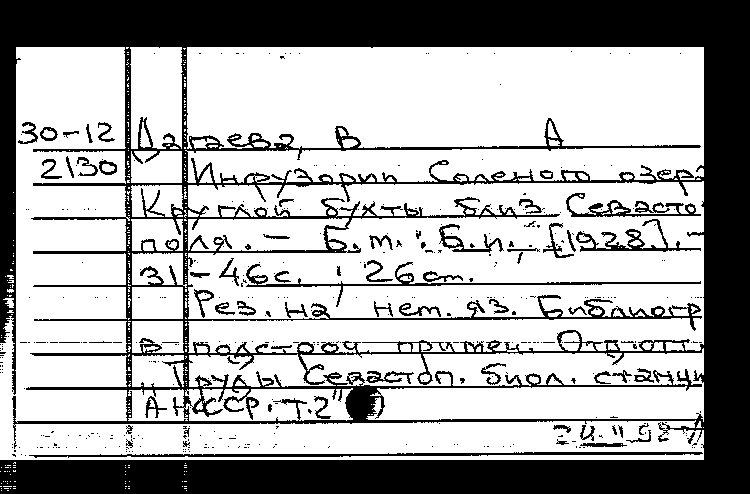 30-12 Дагаева, В А
2130 Инфузории Соленого озера
Круглой бухты близ Севасто-
поля. - Б.м. : Б.и., [1928]. -
31-46 с. ; 26 cm.
Рез. на нем. яз. Библиогр
в подстроч. примеч. Отд.отт.
„Труды Севастоп. биол. станци
АН СССР. Т.2"